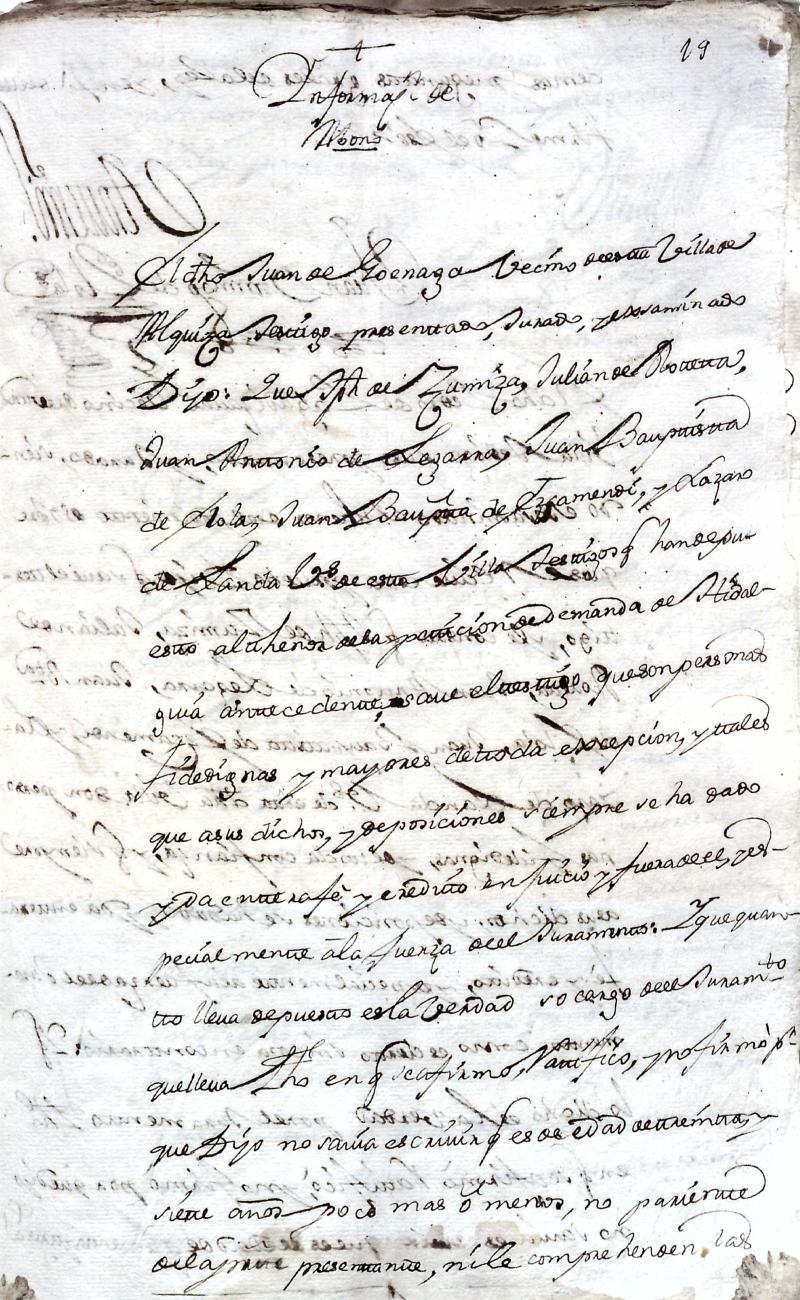 19
Informaⁿ de
Abono
El dho Juan de Goenaga Vecino de esta Villa de
Alquiza testigo presentado, Jurado, y examinado
Dijo: Que Jph de Zumiza, Julian de
Juan Antonio de Lezarra, Juan Bauptista
de Elola, Juan Baupta de Izcamendi, y Lazaro
de Landa Vs de esta Villa testigos q han depu-
esto al thenor de la peticion de demanda de Hidal-
guia antecedente, save el testigo, que son personas
fidedignas y mayores de toda excepcion, y tales
que a sus dichos, y deposiciones siempre se ha dado
y da entera fe, y credito en Juicio y fuera de el, y es-
pecialmente a la fuerza de el Juramento: Y que quan-
to lleva depuesto es la Verdad so cargo de el Juramto
que lleva fho en q se afirmo, Ratifico, y no firmò pr
que Dijo no savia escrivir q es de edad de treinta, y
siete años poco mas ò menos, no pariente
de la parte presentante, ni le comprehenden las